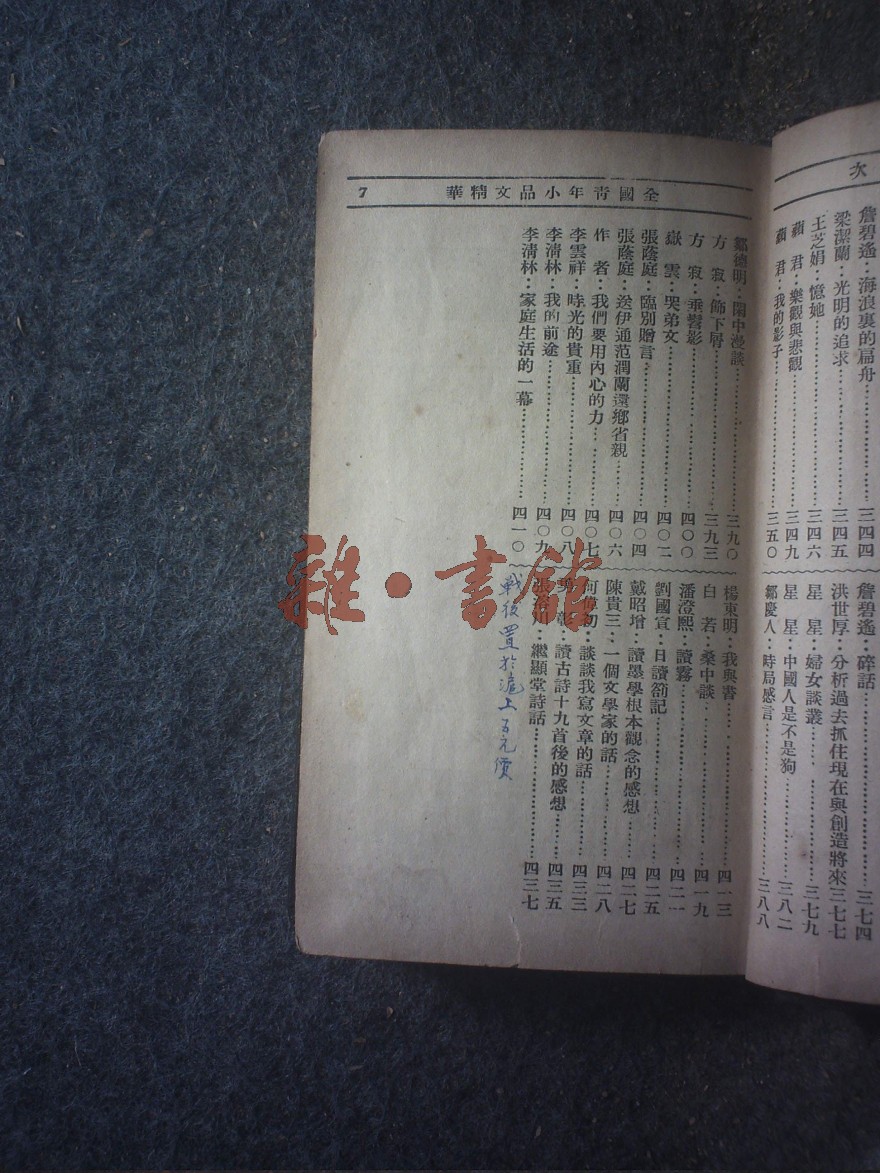 次
詹碧遙：海浪裏的扁舟……三四四
梁潔蘭：光明的追求……三四五
王芝娟：憶她……三四六
蘋　君：樂觀與悲觀……三四九
蘋　君：我的影子……三五〇
詹碧遙：碎話……三七四
洪世厚：分析過去抓住現在與創造將來 三七七
星　星：婦女談叢……三七九
星　星：中國人是不是狗……三八二
鄒慶人：時局感言……三八八
全國青年小品文精華
7
鄒德明：閑中漫談……三九〇
方　寂：飾下屑……三九三
方　寂：垂鬢影……四〇〇
嶽　雲：哭弟文……四〇二
張蔭庭：臨別贈言……四〇四
張蔭庭：送伊通范潤蘭還鄉省親……四〇六
作　者：我們要用內心的力……四〇七
李雲祥：時光的貴重……四〇八
李淸林：我的前途……四〇九
李淸林：家庭生活的一幕……四一〇
楊東明：我與書……四一三
白　若：桑中談……四一九
潘澄熙：讀霧……四二一
劉國宣：日讀箚記……四二五
戴昭增：讀墨學根本觀念的感想……四二七
陳貴三：一個文學家的話……四二八
何偉初：談談我寫文章的話……四三三
彰：讀古詩十九首後的感想……四三五
張　川：繼顯堂詩話……四三七
戰後置於滬上五元價
雜·書館